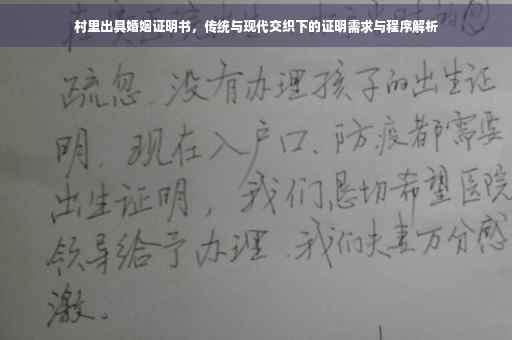 村里出具婚姻证明书，传统与现代交织下的证明需求与程序解析
疏忽、没有办理孩子的出生证
明、现在入户口、防疫都需要
出生证明，我们恳切希望医院
领导给予办理、我们夫妻万分感
激。